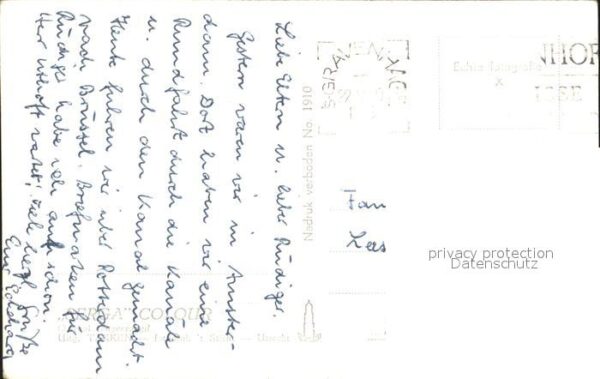 Liebe Eltern u. lieber Rüdiger.
Gestern waren wir in Amster-
dam. Dort haben wir eine
Rundfahrt durch die Kanäle
u. durch den Kanal gemacht.
Heute fahren wir über Rotterdam
nach Brüssel. Briefmarken für
Rüdiger habe ich auch schon.
viele herzl. Grüße
Euer Eckehard
Nadruk verboden No. 1910
'SGRAVENHAGE
NHOF
Echte fotografie
Fam
privacy protection
Datenschutz
COLOUR
Utrecht